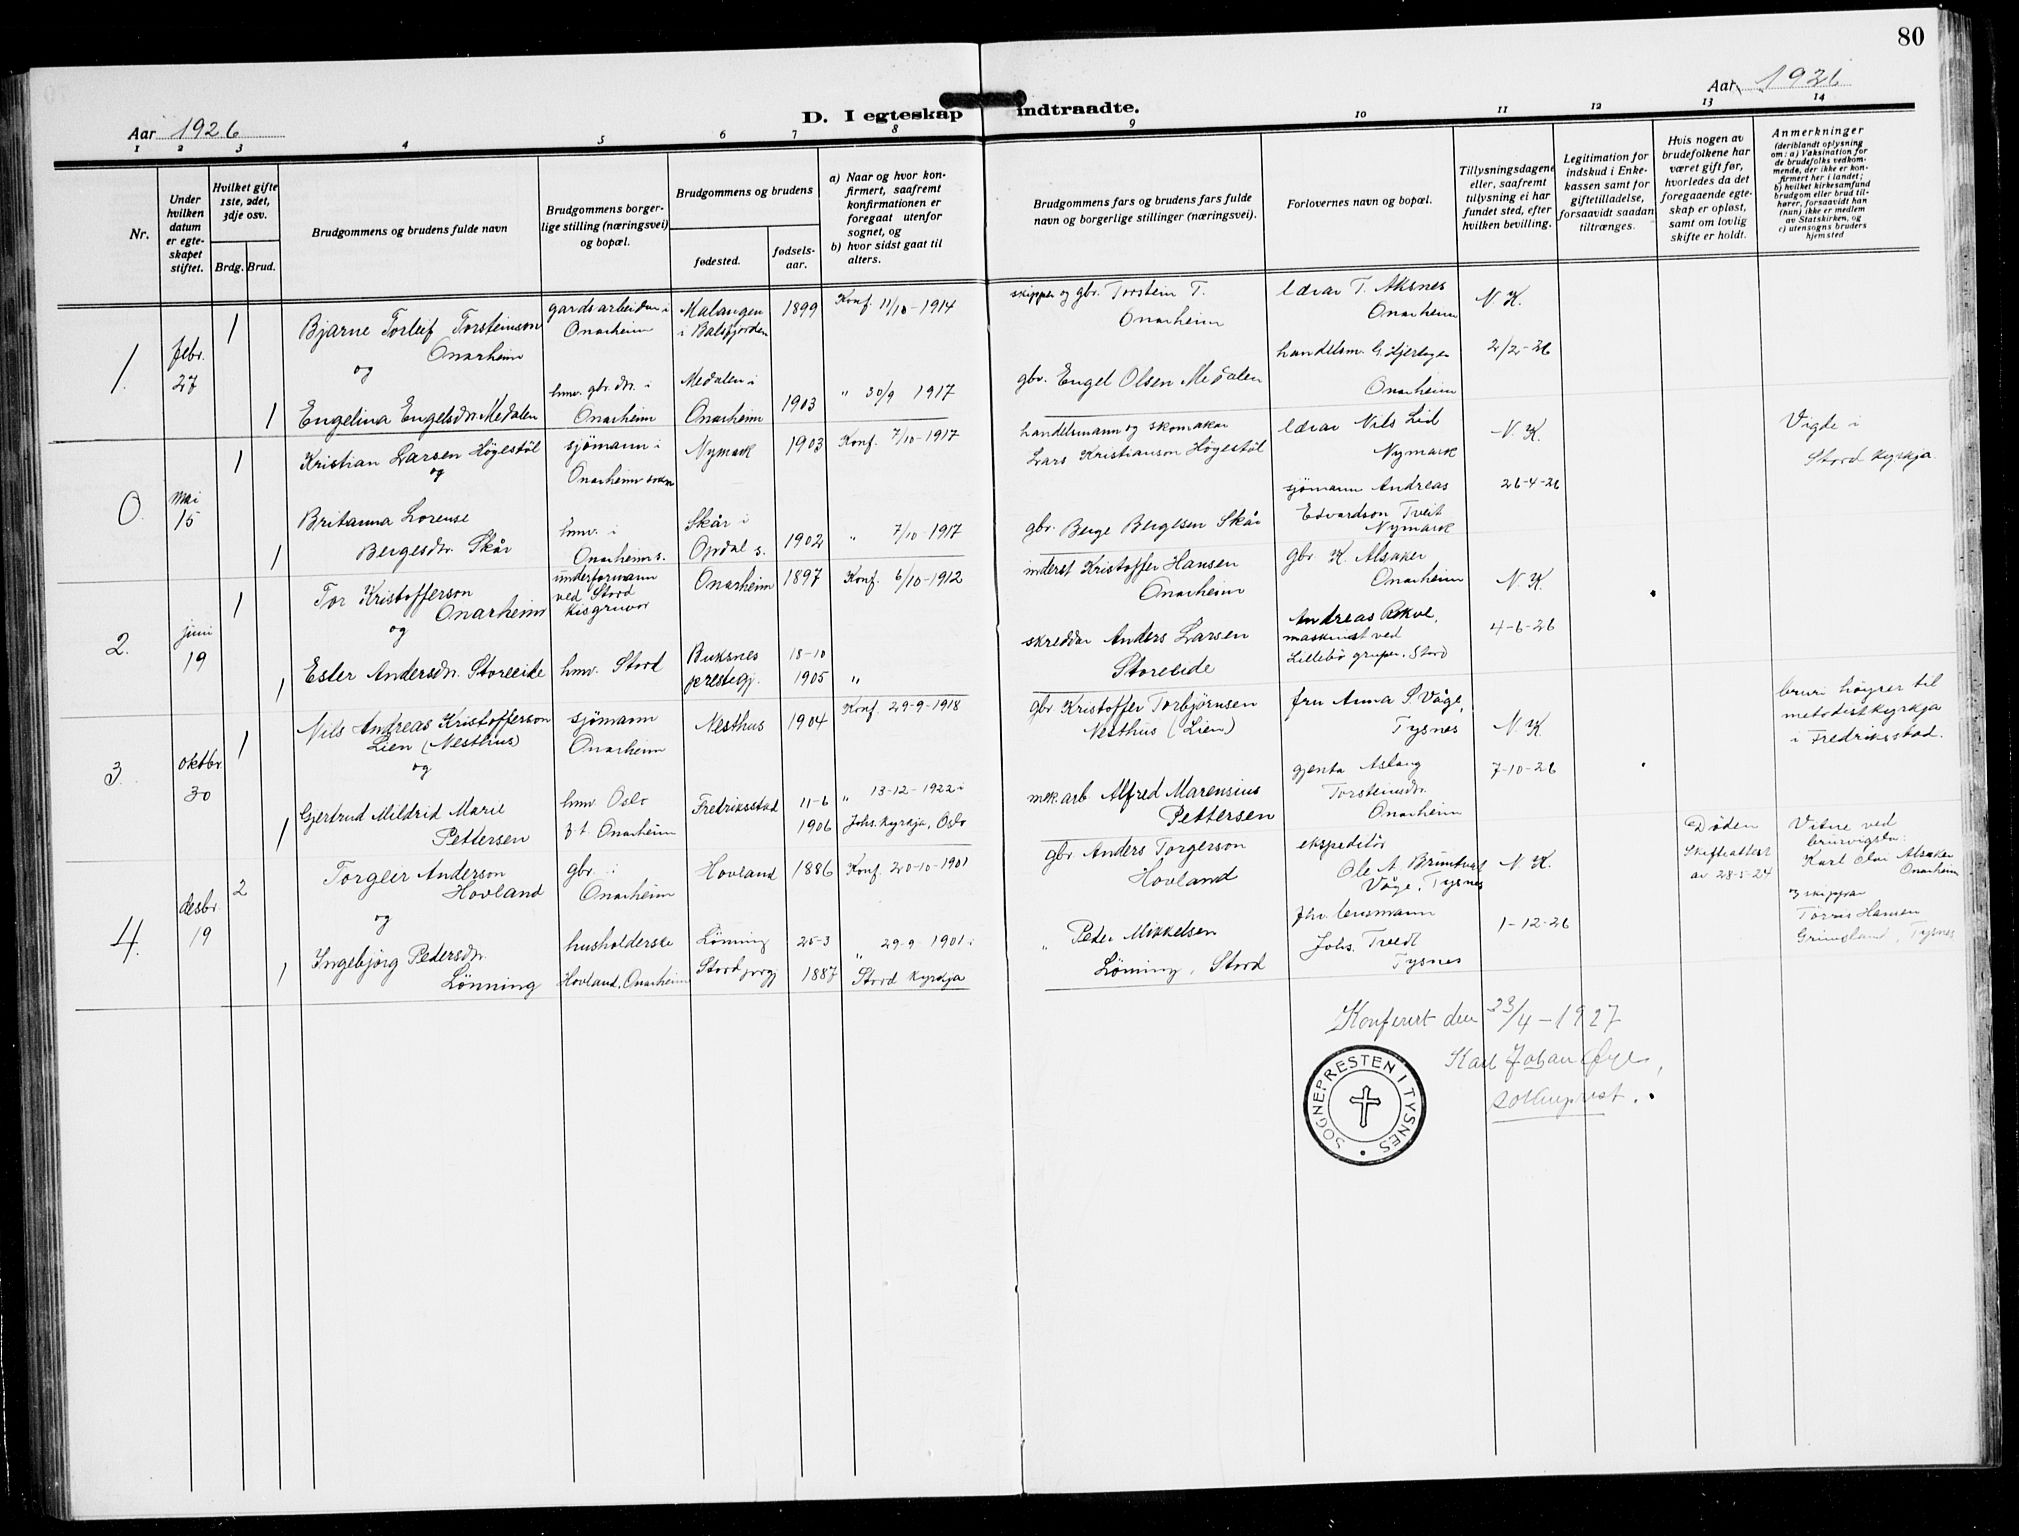 80
Aar 1926
Aar 1926
D. I egteskap indtraadte.
1 2 3 4 5 6 7 8 9 10 11 12 13 14
Nr.
Under hvilken datum er egteskapet stiftet.
Hvilket gifte 1ste, 2det, 3dje osv.
Brdg. Brud.
Brudgommens og brudens fulde navn
Brudgommens borgerlige stilling (næringsvei) og bopæl.
Brudgommens og brudens
fødested.
fødselsaar.
a) Naar og hvor konfirmert, saafremt konfirmationen er foregaat utenfor sognet, og
b) hvor sidst gaat til alters.
Brudgommens fars og brudens fars fulde navn og borgerlige stillinger (næringsvei).
Forlovernes navn og bopæl.
Tillysningsdagene eller, saafremt tillysning ei har fundet sted, efter hvilken bevilling.
Legitimation for indskud i Enkekassen samt for giftetilladelse, forsaavidt saadan tiltrænges.
Hvis nogen av brudefolkene har været gift før, hvorledes da det foregaaende egteskap er opløst, samt om lovlig skifte er holdt.
Anmerkninger
(deriblandt oplysning om: a) Vaksination for de brudefolks vedkommende, der ikke er konfirmert her i landet; b) hvilket kirkesamfund brudgom eller brud tilhører, forsaavidt han (hun) ikke er medlem av Statskirken, og c) utensogns bruders hjemsted
1.
febr. 27
1
Bjarne Torleif Torsteinson
Onarheim
og
gardsarbeidar i
Onarheim
Malangen
i Balsfjorden
1899
Konf. 11/10-1914
skipper og gbr. Torstein T.
Onarheim
lærar T. Aksnes
Onarheim
N. K.
1
Engelina Engelsdn. Medalen
hmv. gbr.dn. i
Onarheim
Medalen i
Onarheim
1903
" 30/9 1917
gbr. Engel Olsen Medalen
handelsm.
Onarheim
2/2-26
0.
mai 15
1
Kristian Larsen Høgestøl
og
sjømann i
Onarheim sokn
Nymark
1903
Konf. 7/10-1917
handelsmann og skomakar
Lars Kristianson Høgestøl
lærar Nils Lid
Nymark
N. K.
Vigde i
Stord kyrkja.
1
Britanna Lorense
Bergesdtr. Skår
hmv. i
Onarheim s.
Skår i
Opdal s.
1902
" 7/10-1917
gbr. Berge Bergesen Skår
sjømann Andreas
Edvardson Tveit
Nymark
26-4-26
2.
juni 19
1
Tor Kristofferson
Onarheim
og
underformann
ved Stord
Kisgruvor
Onarheim
1897
Konf. 6/10-1912
inderst Kristoffer Hansen
Onarheim
gbr K. Alsaker
Onarheim
N. K.
1
Ester Andersdn. Storeeide
hmv. Stord
Buksnes
prestegj.
18-10
1905
"
skreddar Anders Larsen
Storeeide
Andreas
maskinist ved
Lillebø gruber, Stord
4-6-26
3.
oktbr. 30
1
Nils Andreas Kristofferson
Lien (Nesthus)
og
sjømann
Onarheim
Nesthus
1904
Konf. 29-9-1918
gbr Kristoffer Torbjørnsen
Nesthus (Lien)
fru Anna S. Våge,
Tysnes
N. K.
bruri høyrer til
metodistkyrkja
i Fredriksstad.
1
Gjertrud Mildrid Marie
Pettersen
hmv Oslo
z.t. Onarheim
Fredriksstad
11-6
1906
" 13-12-1922 i
Johs. kyrkja, Oslo
mek.arb Alfred Marensius
Pettersen
gjenta Aslaug
Torsteinsdn.
Onarheim
7-10-26
4.
desbr. 19
2
Torgeir Anderson
Hovland
og
gbr. i
Onarheim
Hovland
1886
Konf. 20-10-1901
gbr Anders Torgerson
Hovland
ekspeditør
Ole A. Brimtvåt
Våge, Tysnes
N. K.
Døden
Skifteattest
av 28-5-24
Vitne ved
Karl Alsaker
Onarheim
og skippar
Hansen
Grimsland, Tysnes
1
Ingebjørg Pedersdn.
Lønning
husholderske
Hovland, Onarheim
Lønning
Stord prgj
25-3
1887
" 29-9 1901 i
Stord kyrkja
" Peder Mikkelsen
Lønning, Stord
fhv. lensmann
Johs. Tveit
Tysnes
1-12-26
Konferert den 23/4-1927
Karl Johan
sokneprest.
SOGNEPRESTEN I TYSNES